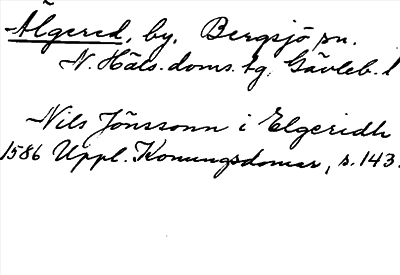 Älgered, by, Bergsjö sn.
N. Häls. doms. tg. Gävleb. l
Nils Jönssonn i Elgeridh
1586 Uppl. Konungsdomar, s. 143.